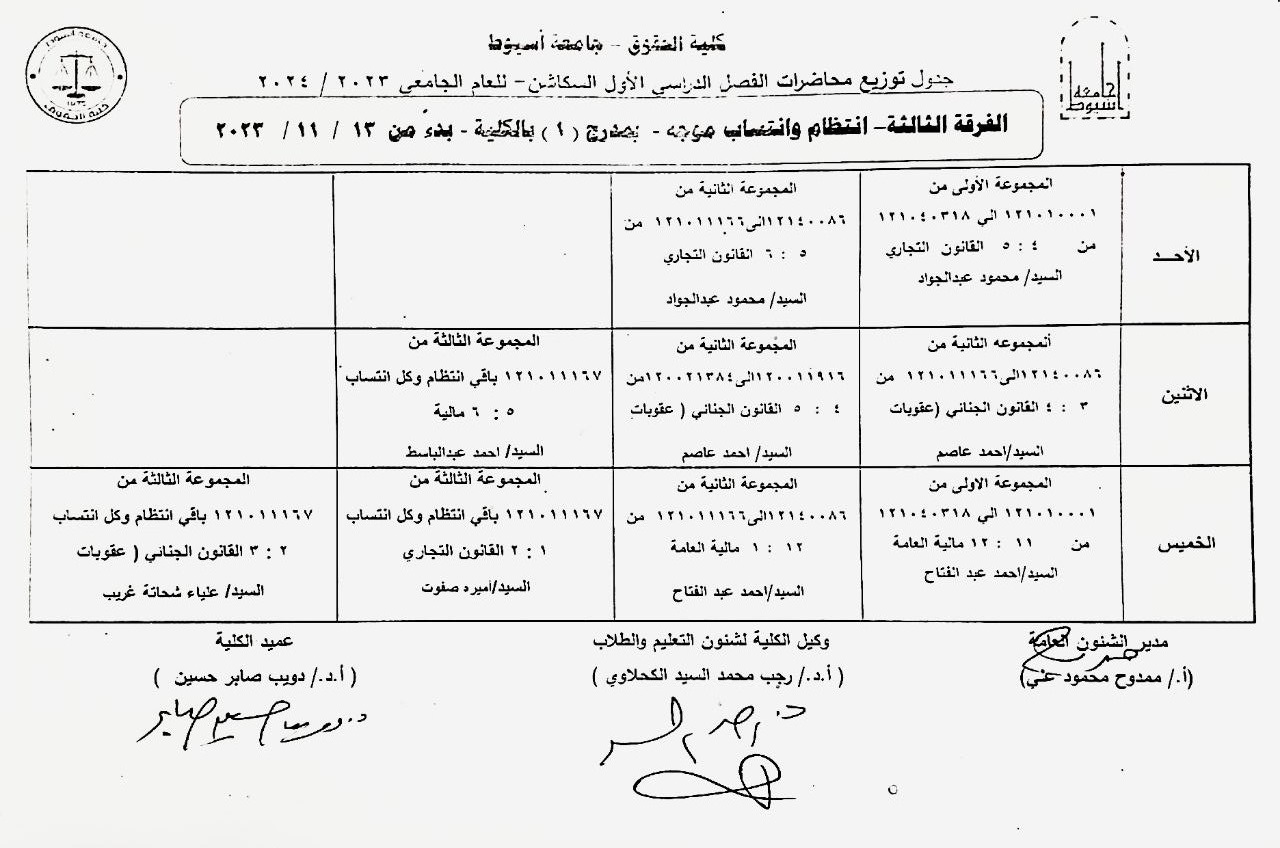 كلية الحقوق - جامعة أسيوط
جدول توزيع محاضرات الفصل الدراسي الأول السكاشن - للعام الجامعي ٢٠٢٣ / ٢٠٢٤
الفرقة الثالثة - انتظام وانتساب موجه - بمدرج ( ١ ) بالكلية - بدء من ١٣ / ١١ / ٢٠٢٣
جامعة أسيوط
الأحد
المجموعة الأولى من
١٢١٠١٠٠٠١ الي ١٢١٠٤٠٣١٨
من ٤ : ٥ القانون التجاري
السيد/ محمود عبدالجواد
المجموعة الثانية من
١٢١٤٠٠٨٦الى١٢١٠١١١٦٦ من
٥ : ٦ القانون التجاري
السيد/ محمود عبدالجواد
الاثنين
المجموعه الثانية من
١٢١٤٠٠٨٦الى١٢١٠١١١٦٦ من
٣ : ٤ القانون الجنائي (عقوبات
السيد/احمد عاصم
المجموعة الثانية من
١٢٠٠١١٩١٦الى١٢٠٠٢١٣٨٤من
٤ : ٥ القانون الجنائي ( عقوبات
السيد/ احمد عاصم
المجموعة الثالثة من
١٢١٠١١١٦٧ باقي انتظام وكل انتساب
٥ : ٦ مالية
السيد/ احمد عبدالباسط
الخميس
المجموعة الاولى من
١٢١٠١٠٠٠١ الي ١٢١٠٤٠٣١٨
من ١١ : ١٢ مالية العامة
السيد/احمد عبد الفتاح
المجموعة الثانية من
١٢١٤٠٠٨٦الى١٢١٠١١١٦٦ من
١٢ : ١ مالية العامة
السيد/احمد عبد الفتاح
المجموعة الثالثة من
١٢١٠١١١٦٧ باقي انتظام وكل انتساب
١ : ٢ القانون التجاري
السيد/أميره صفوت
المجموعة الثالثة من
١٢١٠١١١٦٧ باقي انتظام وكل انتساب
٢ : ٣ القانون الجنائي ( عقوبات
السيد/ علياء شحاتة غريب
مدير الشئون العامة
(أ./ ممدوح محمود عني)
وكيل الكلية لشئون التعليم والطلاب
( أ.د./ رجب محمد السيد الكحلاوي )
عميد الكلية
( أ.د./ دويب صابر حسين )